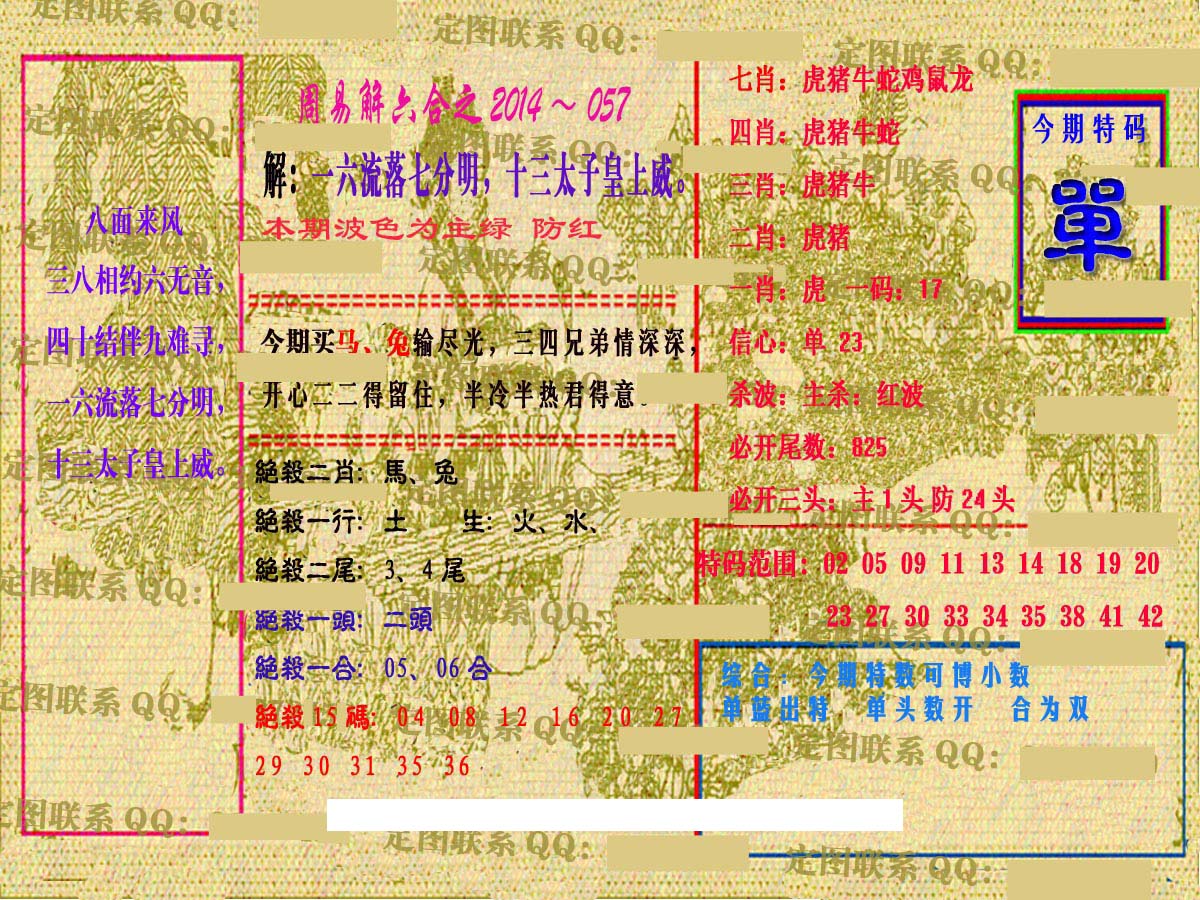 周易解六合之 2014～057
八面来风
三八相约六无音，
四十结伴九难寻，
一六流落七分明，
十三太子皇上威。
解：一六流落七分明，十三太子皇上威。
本期波色为主绿 防红
今期买马、兔输尽光，三四兄弟情深深，
开心二二得留住，半冷半热君得意.
絕殺二肖：馬、兔
絕殺一行：土 生：火、水、
絕殺二尾：3、4 尾
絕殺一頭：二頭
絕殺一合：05、06 合
絕殺 15 碼：04 08 12 16 20 27
29 30 31 35 36
七肖：虎猪牛蛇鸡鼠龙
四肖：虎猪牛蛇
三肖：虎猪牛
二肖：虎猪
一肖：虎 一码：17
信心：单 23
杀波：主杀：红波
必开尾数：825
必开三头：主 1 头 防 24 头
今期特码
單
特码范围：02 05 09 11 13 14 18 19 20
23 27 30 33 34 35 38 41 42
综合：今期特数可博小数
单蓝出特 单头数开 合为双
定图联系 QQ：
定图联系 QQ：
定图联系 QQ：
定图联系 QQ：
定图联系 QQ：
定图联系 QQ：
定图联系 QQ：
定图联系 QQ：
定图联系 QQ：
定图联系 QQ：
定图联系 QQ：
定图联系 QQ：
定图联系 QQ：
定图联系 QQ：